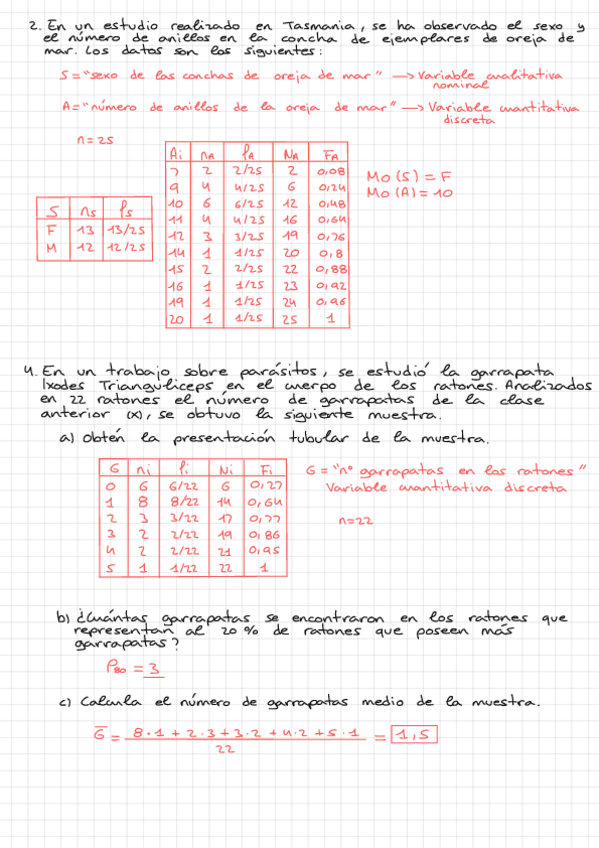 2. En un estudio realizado en Tasmania, se ha observado el sexo y
el número de anillos en la concha de ejemplares de oreja de
mar. Los datos son los siguientes:
S = "sexo de las conchas de oreja de mar" → Variable cualitativa
nominal
A = "número de anillos de la oreja de mar" → Variable cuantitativa
discreta
n = 25
Ai nA fA NA FA
7 2 2/25 2 0,08
9 4 4/25 6 0,24
10 6 6/25 12 0,48
11 4 4/25 16 0,64
12 3 3/25 19 0,76
14 1 1/25 20 0,8
15 2 2/25 22 0,88
16 1 1/25 23 0,92
19 1 1/25 24 0,96
20 1 1/25 25 1
Mo (S) = F
Mo (A) = 10
S ns fs
F 13 13/25
M 12 12/25
4. En un trabajo sobre parásitos, se estudió la garrapata
Ixodes Trianguliceps en el cuerpo de los ratones. Analizados
en 22 ratones el número de garrapatas de la clase
anterior (x), se obtuvo la siguiente muestra.
a) Obtén la presentación tubular de la muestra.
G ni fi Ni Fi
0 6 6/22 6 0,27
1 8 8/22 14 0,64
2 3 3/22 17 0,77
3 2 2/22 19 0,86
4 2 2/22 21 0,95
5 1 1/22 22 1
G = "nº garrapatas en los ratones"
Variable cuantitativa discreta
n=22
b) ¿Cuántas garrapatas se encontraron en los ratones que
representan al 20 % de ratones que poseen más
garrapatas?
P80 = 3
c) Calcula el número de garrapatas medio de la muestra.
G̅ = 8·1 + 2·3 + 3·2 + 4·2 + 5·1 / 22 = 1,5